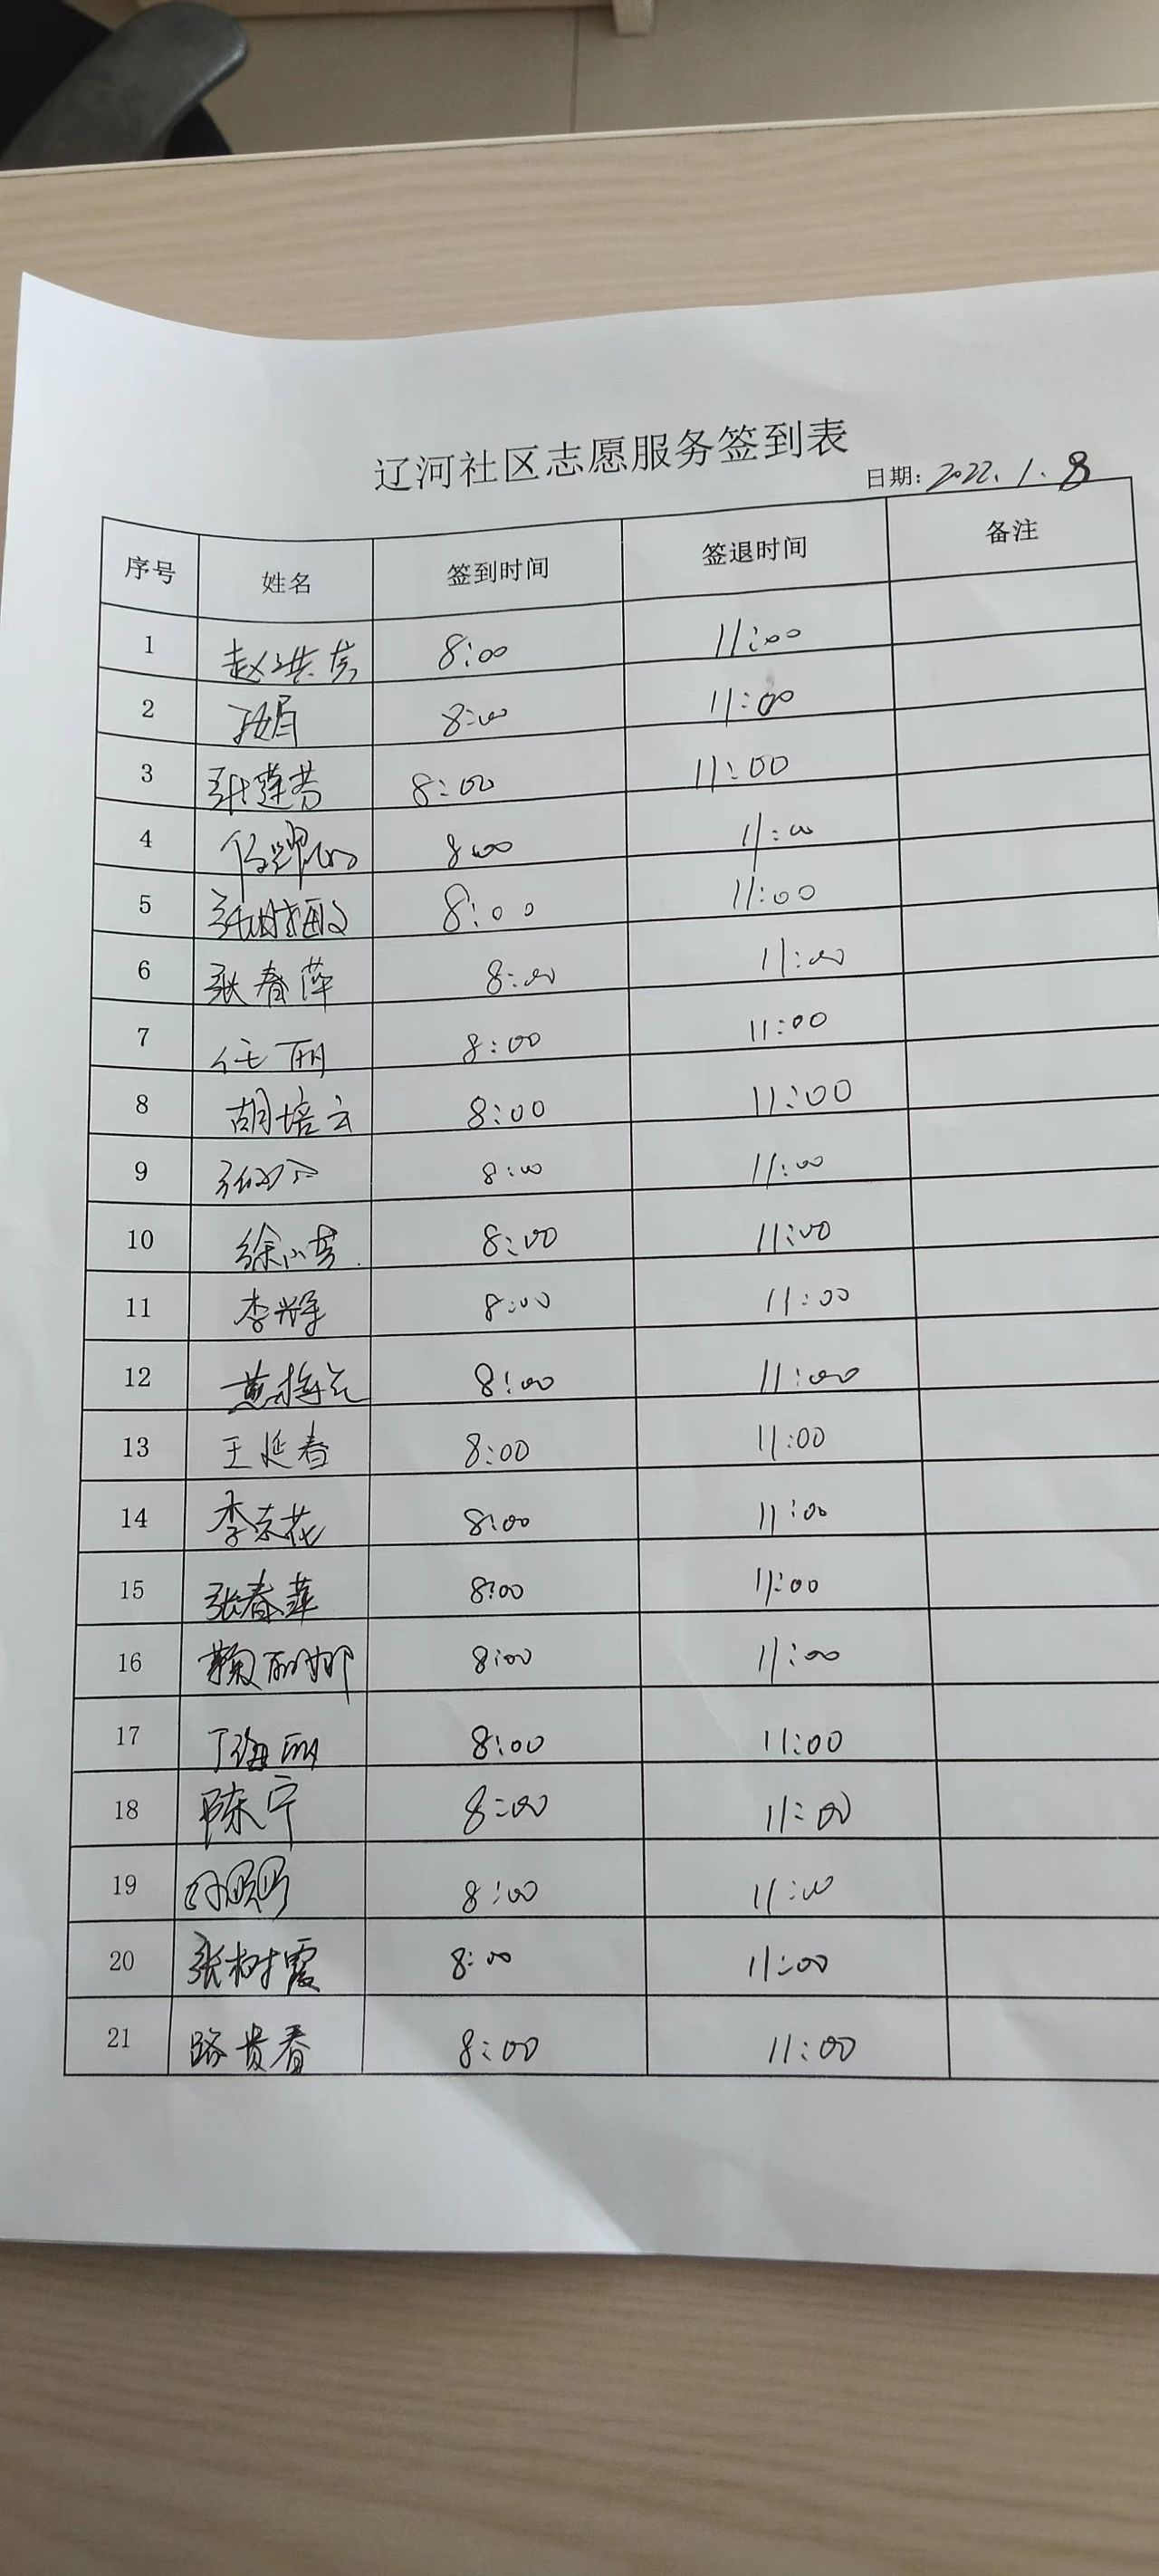 辽河社区志愿服务签到表
日期: 2022.1.8
序号 姓名 签到时间 签退时间 备注
1 8:00 11:00
2 8:00 11:00
3 张莲芳 8:00 11:00
4 8:00 11:00
5 8:00 11:00
6 张春萍 8:00 11:00
7 任丽 8:00 11:00
8 胡培云 8:00 11:00
9 8:00 11:00
10 徐小芳 8:00 11:00
11 李兴华 8:00 11:00
12 黄梅兰 8:00 11:00
13 王延春 8:00 11:00
14 李京花 8:00 11:00
15 张春萍 8:00 11:00
16 鞠丽娜 8:00 11:00
17 丁海丽 8:00 11:00
18 陈宁 8:00 11:00
19 8:00 11:00
20 张树霞 8:00 11:00
21 路贵春 8:00 11:00